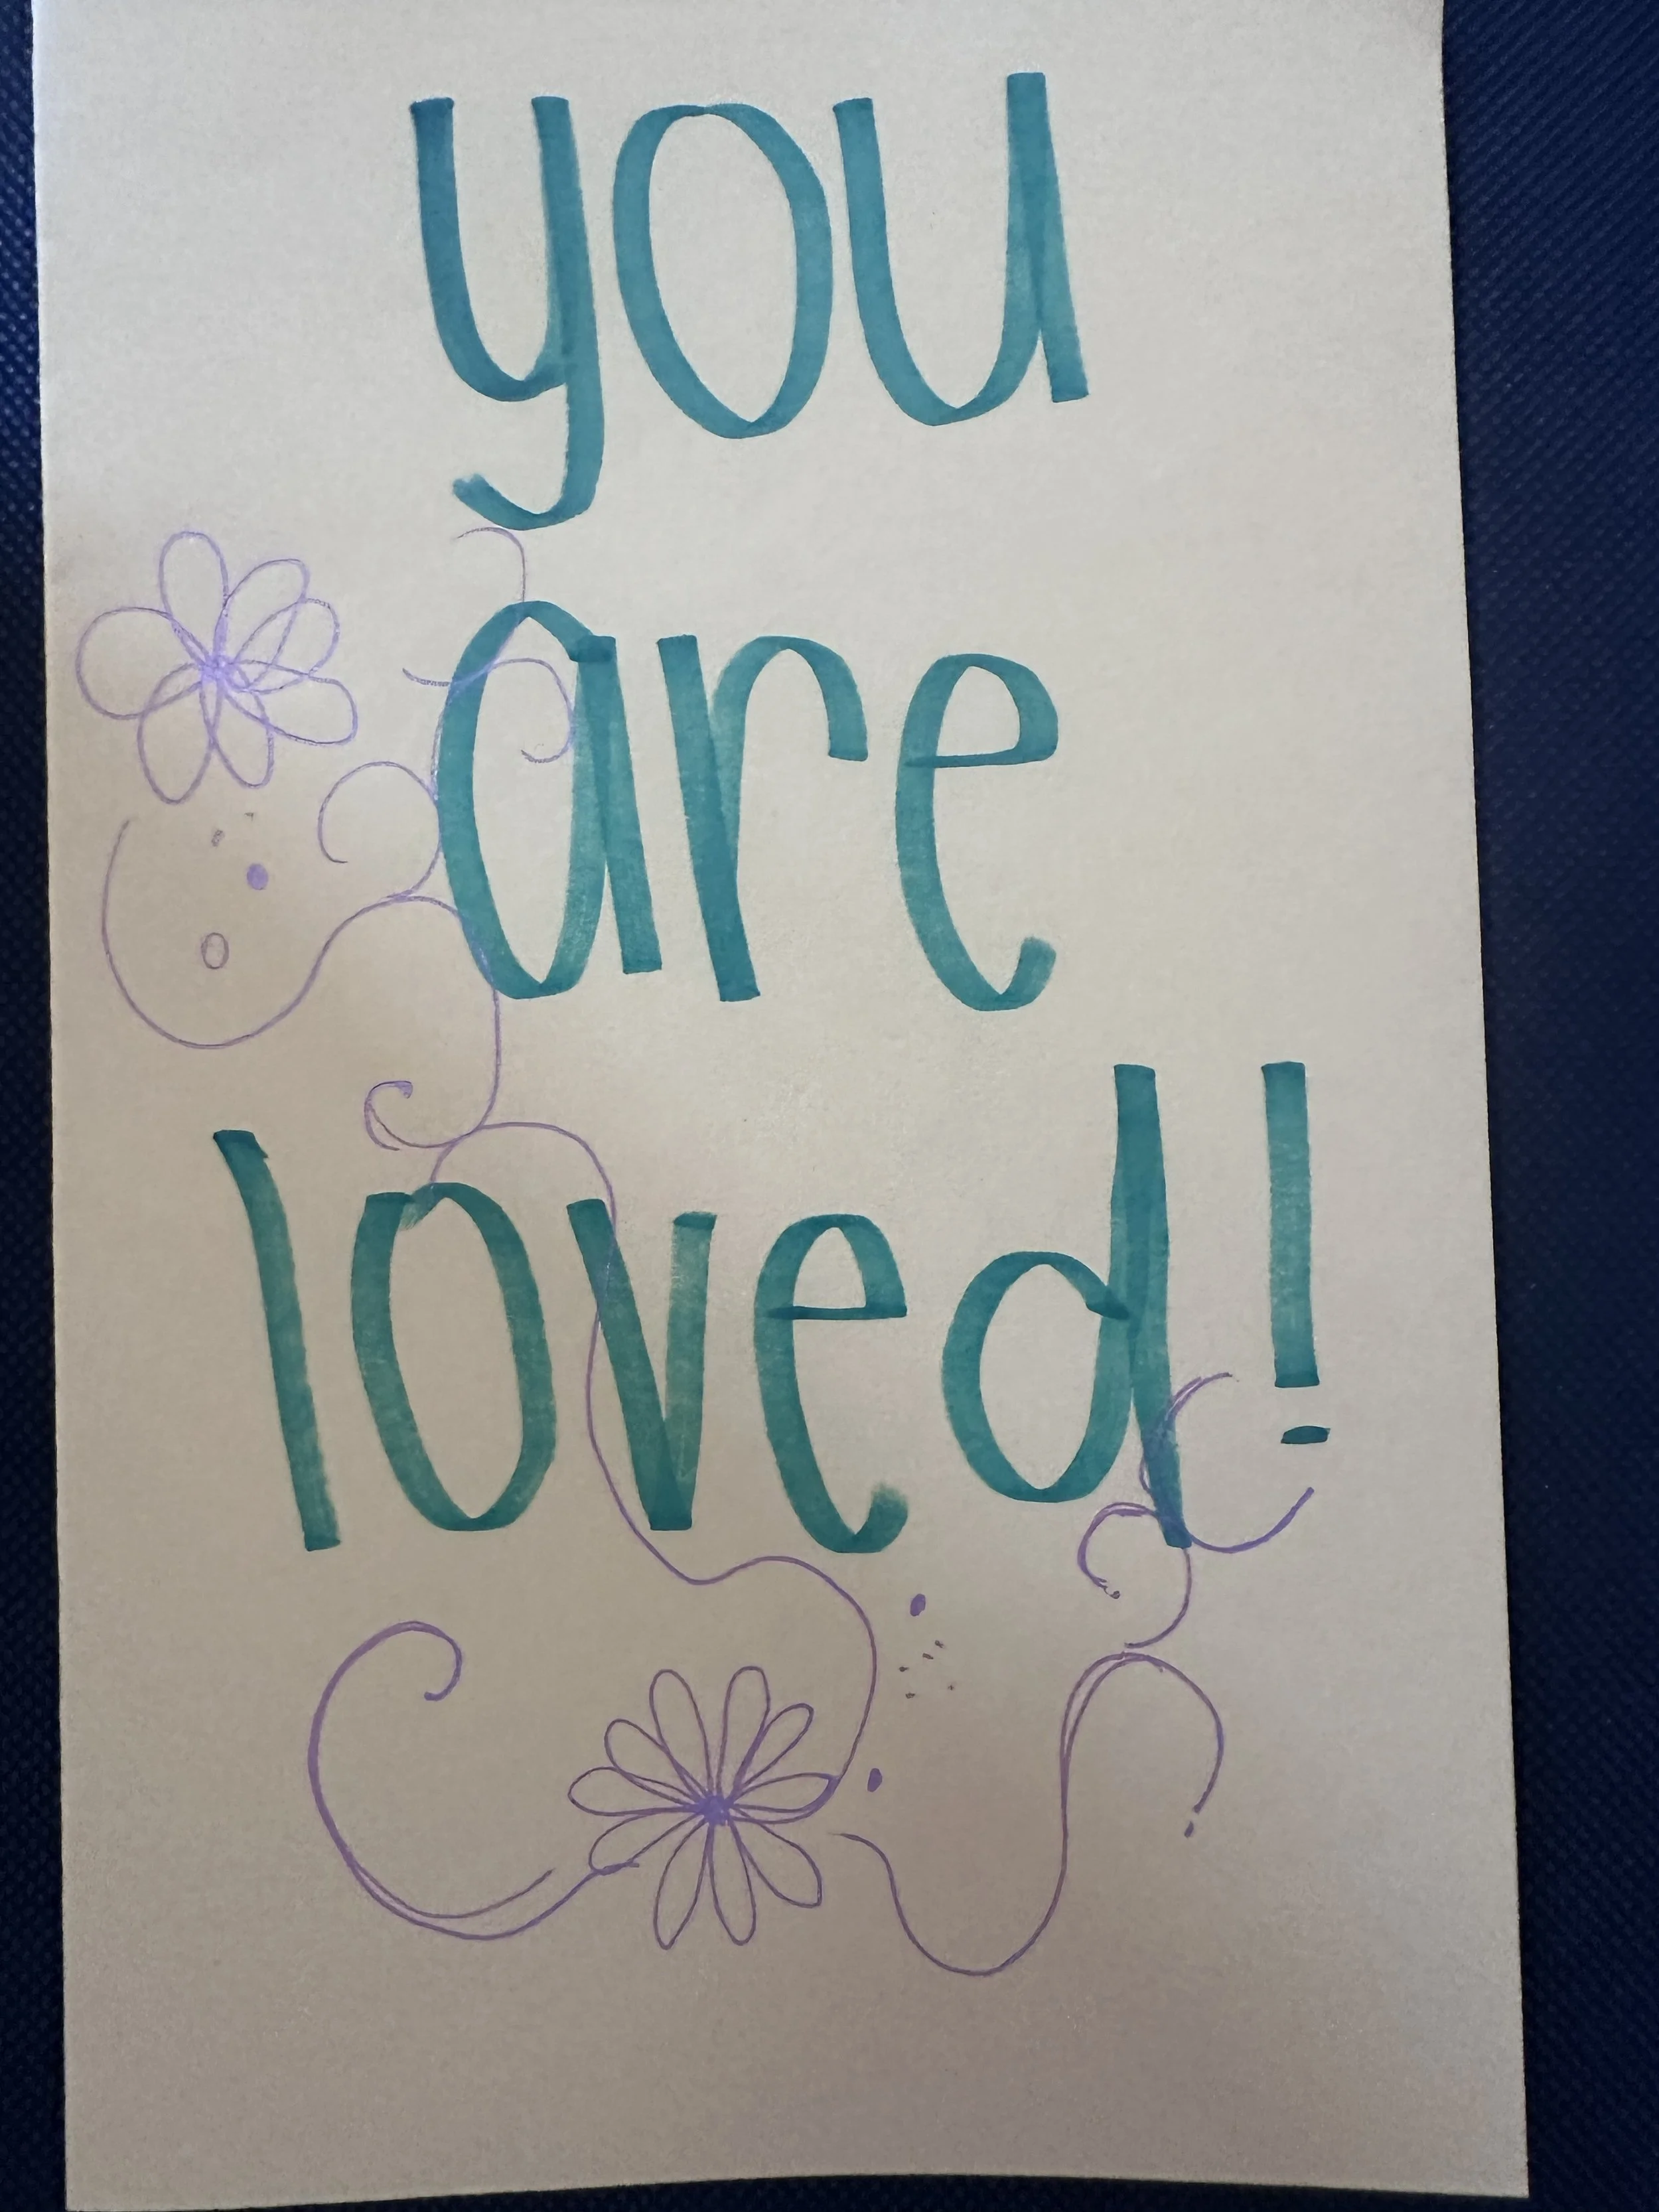 you
are
loved!